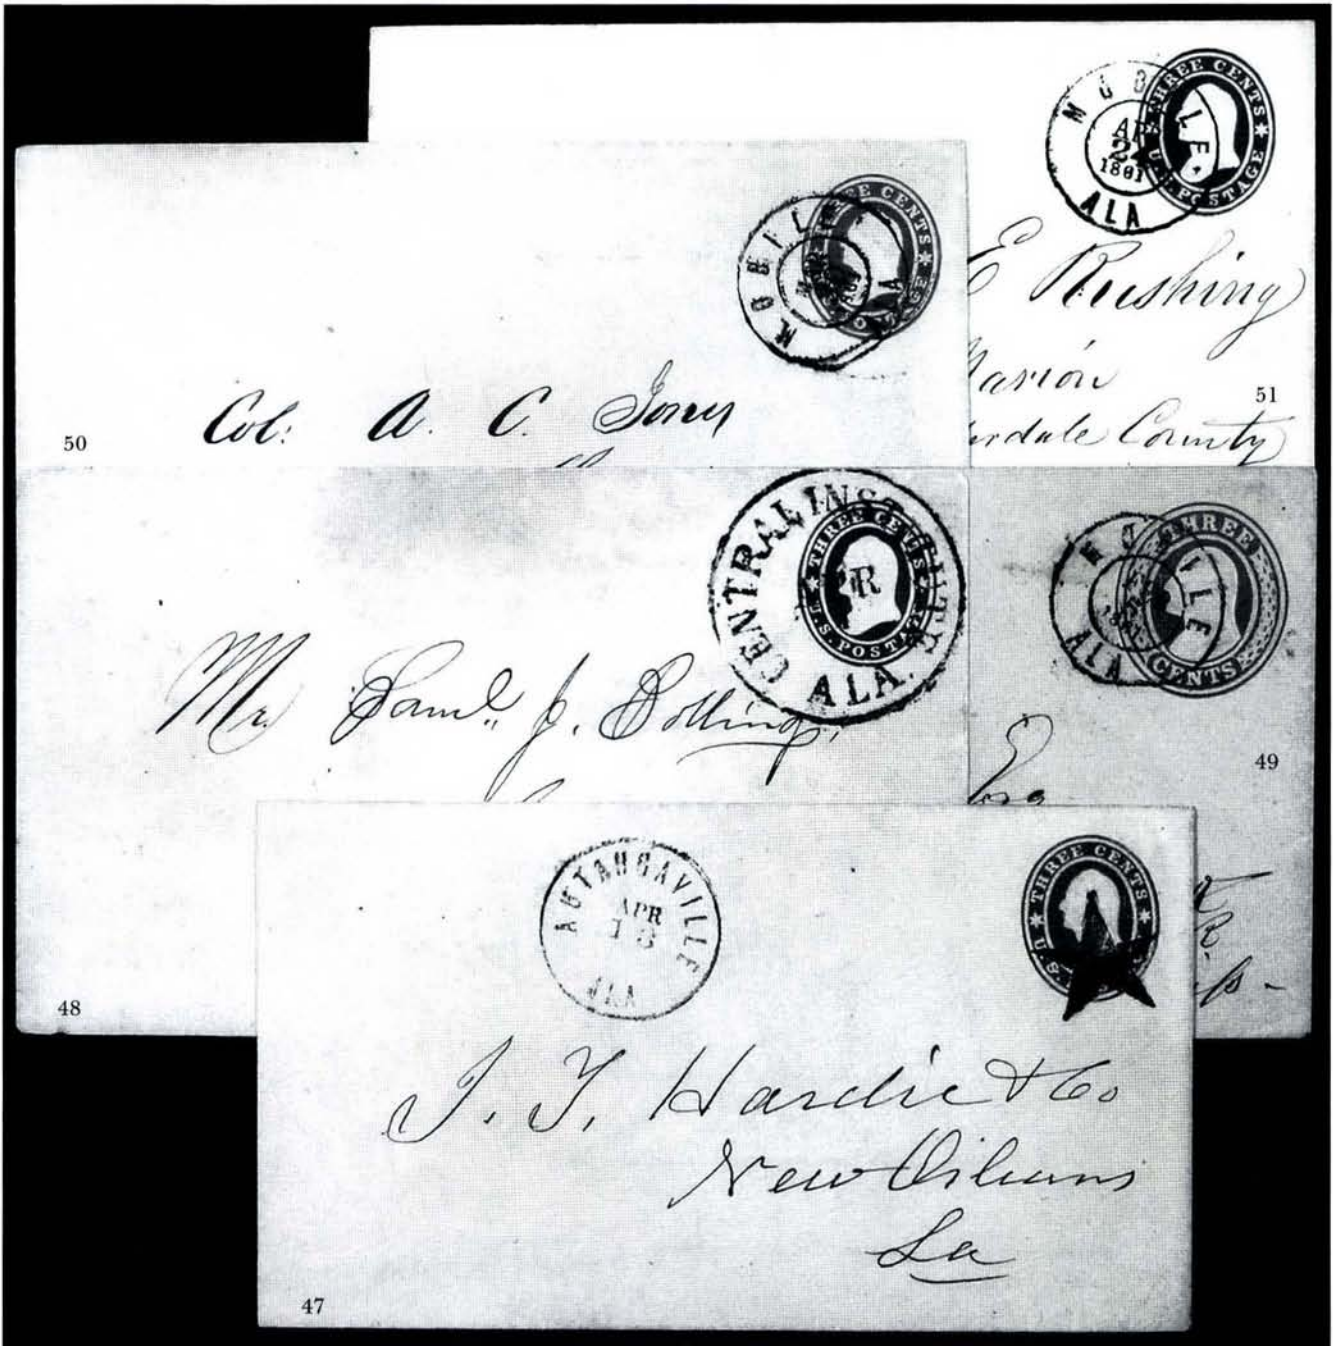 MOBILE
AP
2
1861
ALA
THREE CENTS
U.S. POSTAGE
E Rushing
Marion
rdale County
51
MOBILE
CENTS
Col: A. C. Jones
50
CENTRAL INSTITUTE
ALA.
THREE CENTS
U.S. POSTAGE
R
Mr Saml. J. Bolling,
48
MOBILE
ALA
THREE
CENTS
49
AUTAUGAVILLE
APR
13
ALA
THREE CENTS
U.S.
J. T. Hardie & Co
New Orleans
La
47